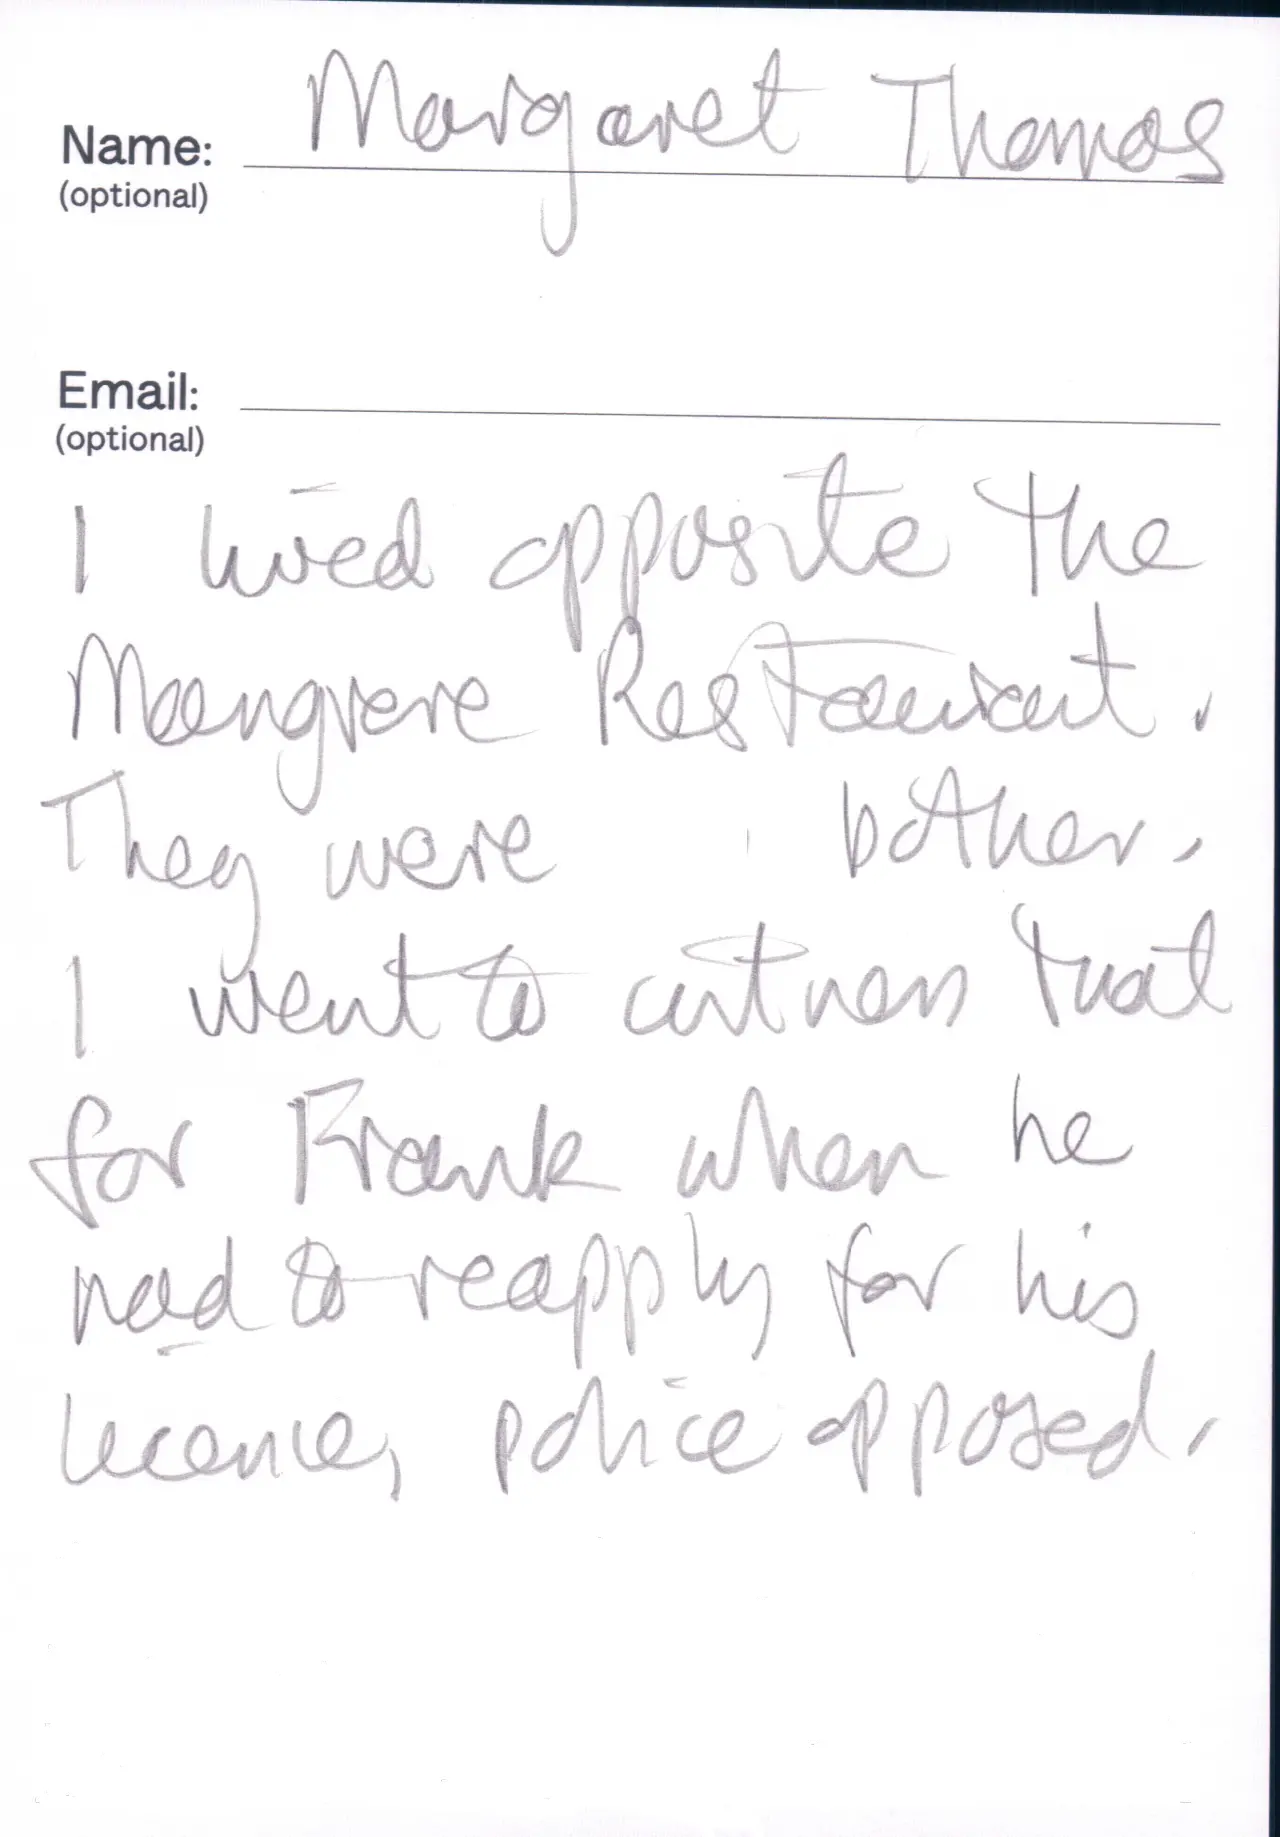 Name: Margaret Thomas
(optional)
Email:
(optional)
I lived opposite the
Mangrove Restaurant.
They were bother.
I went to witness that
for Frank when he
had to reapply for his
licence, police opposed.